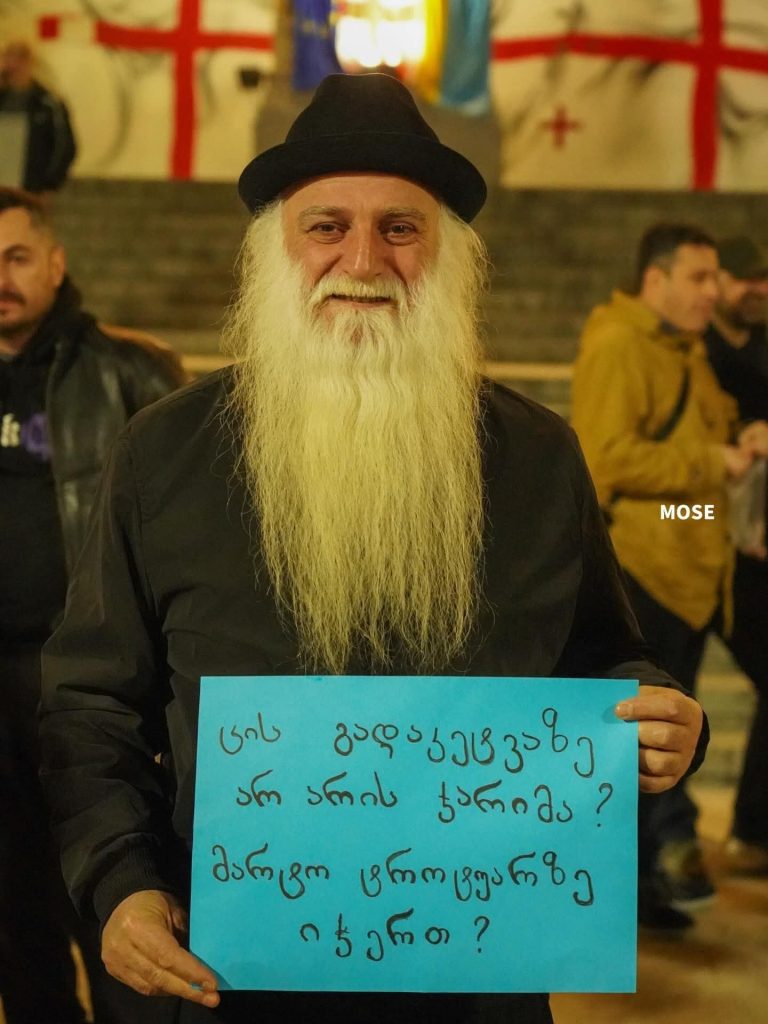 MOSE
ცის გადაკეტვაზე
არ არის ჯარიმა?
მარტო ტროტუარზე
იჭერთ?